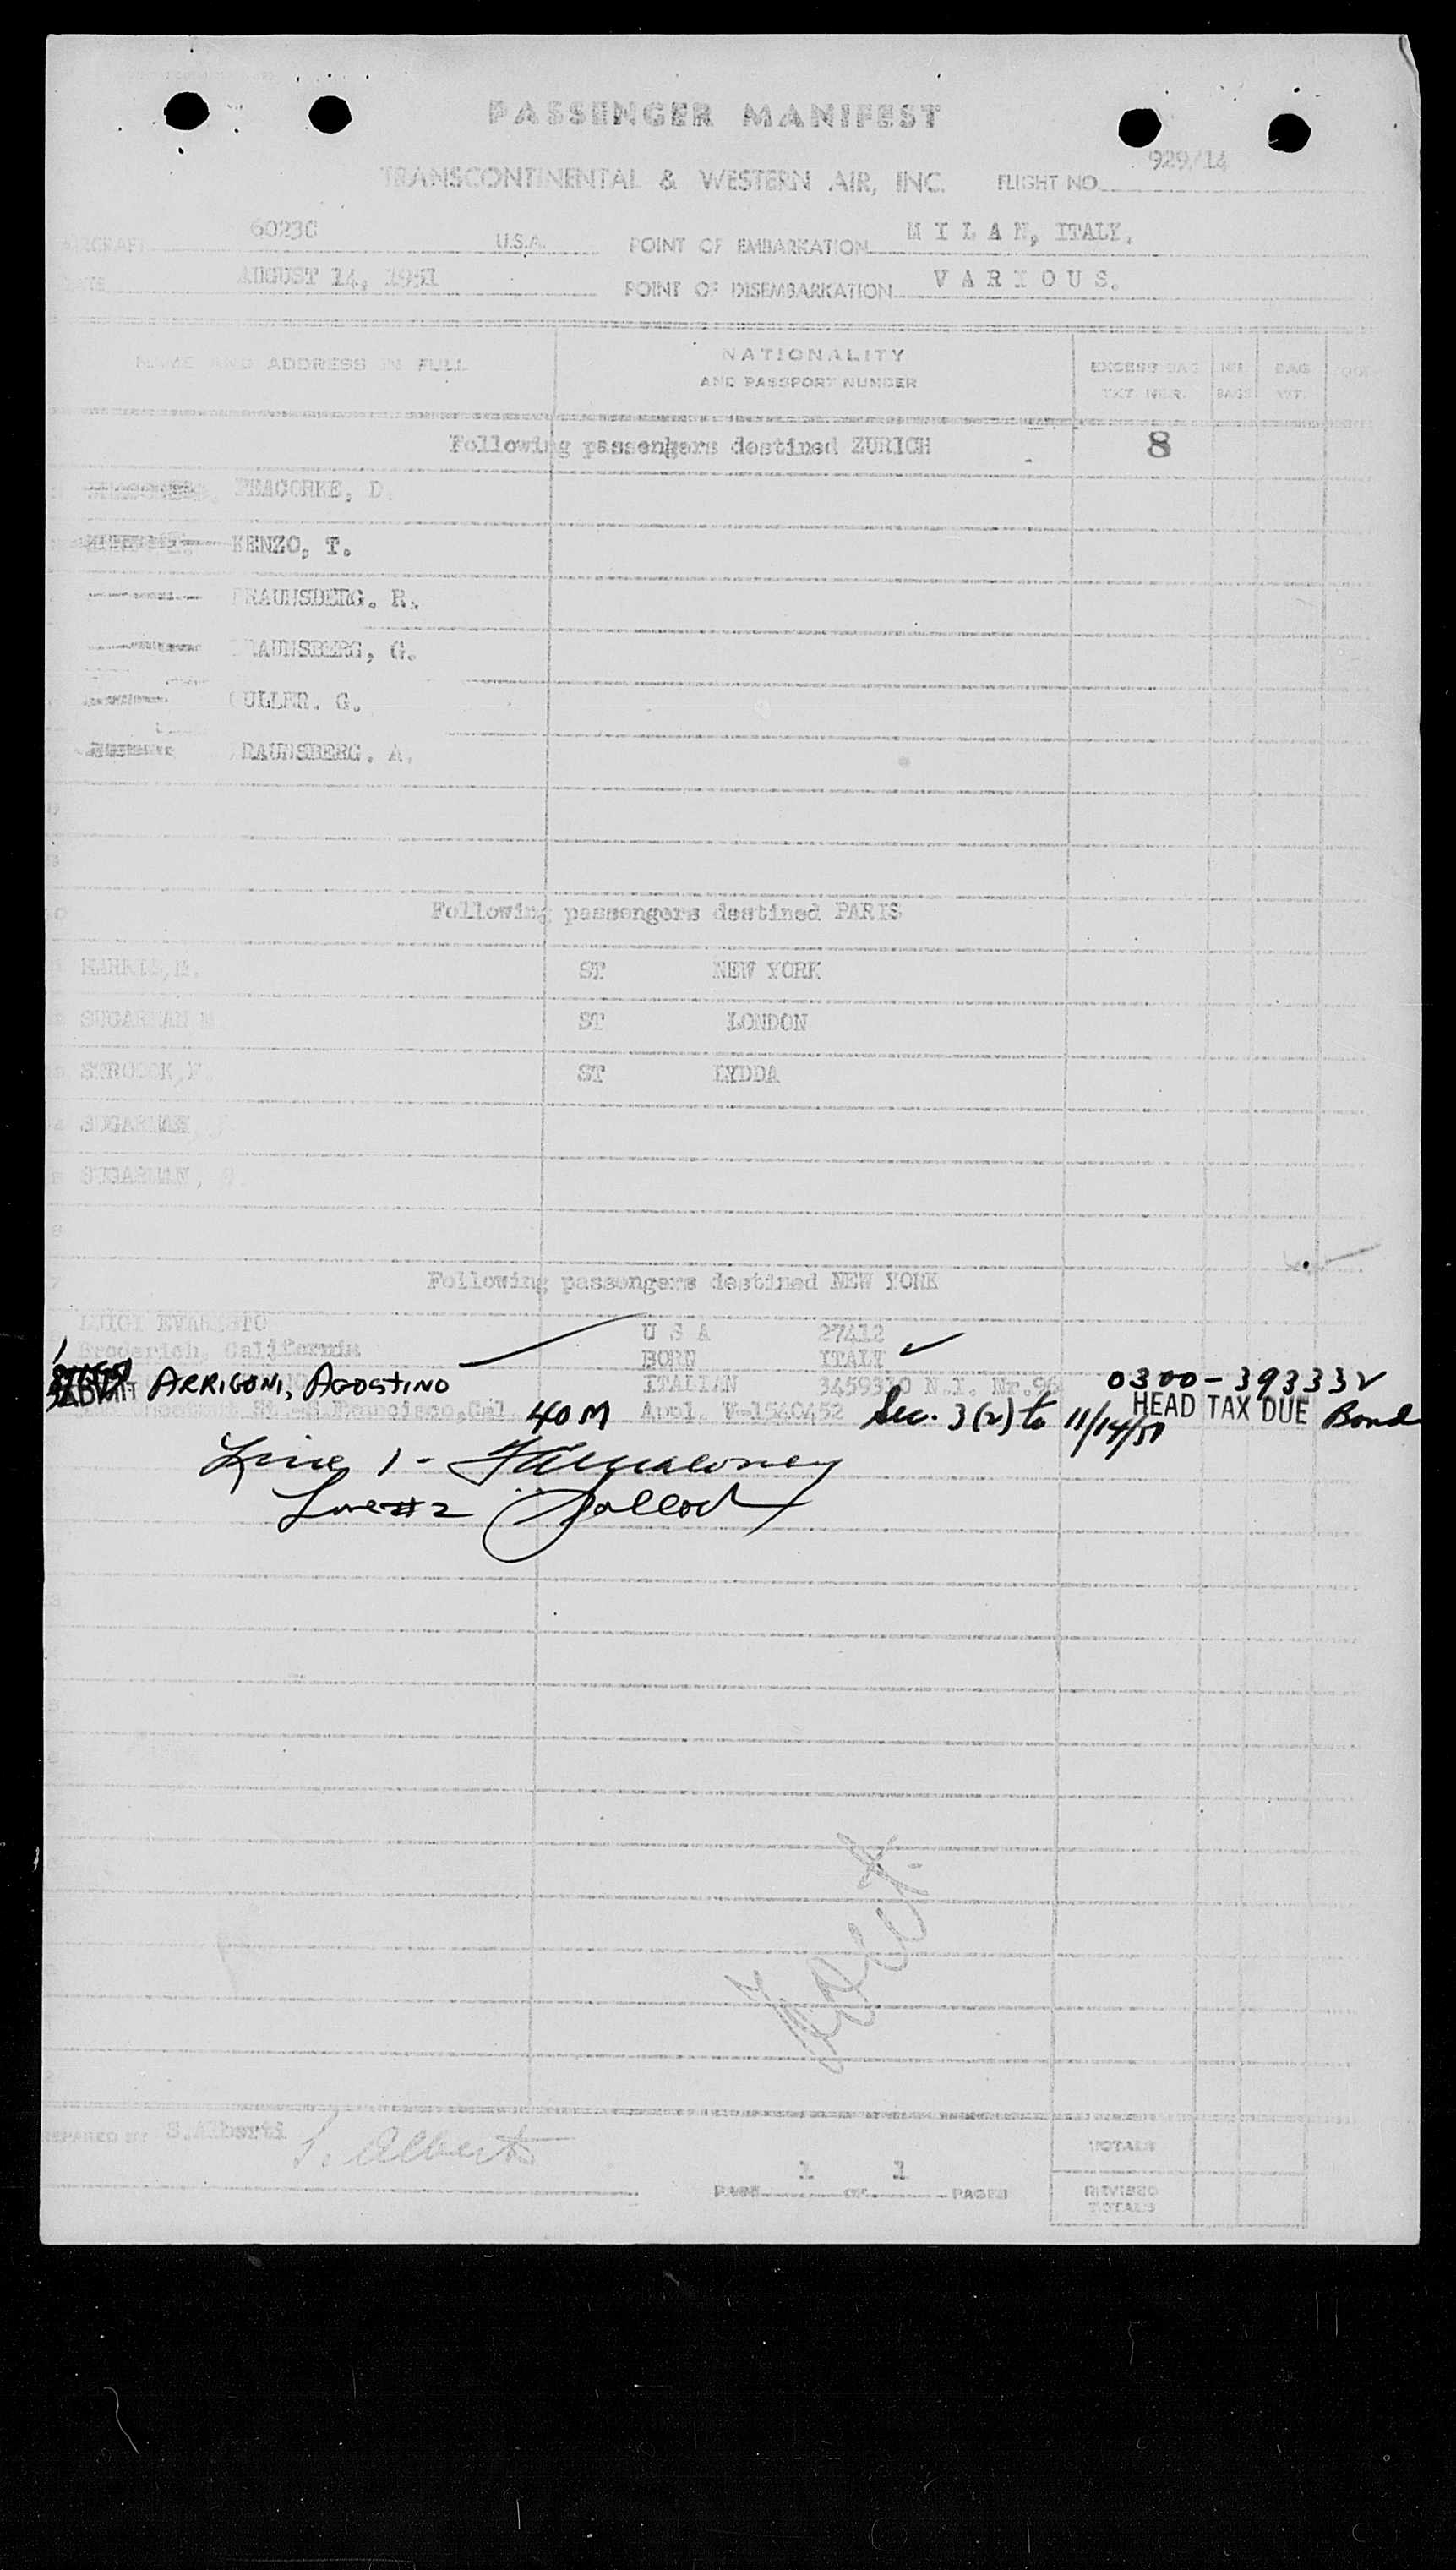 PASSENGER MANIFEST
TRANSCONTINENTAL & WESTERN AIR, INC. FLIGHT NO. 929/14
AIRCRAFT 60230 U.S.A. POINT OF EMBARKATION M I L A N, ITALY.
DATE AUGUST 14, 1951 POINT OF DISEMBARKATION V A R I O U S.
NAME AND ADDRESS IN FULL NATIONALITY AND PASSPORT NUMBER EXCESS BAG TKT NBR. NBR BAGS BAG WT.
Following passengers destined ZURICH 8
PEACORKE, D.
KENZO, T.
BRAUNSBERG. R.
BRAUNSBERG, G.
ULLER. G.
BRAUNSBERG. A.
Following passengers destined PARIS
HARRIS, M. ST NEW YORK
SUGARMAN M. ST LONDON
STROOCK, F. ST LYDDA
SUGARMAN
SUGARMAN,
Following passengers destined NEW YORK
LUIGI EVARISTO U S A 27412
Broderich, California BORN ITALY
1
ARRIGONI, AGOSTINO ITALIAN 3459310 N.I. Nr. 96 0300-393332
ADMIT St. S. Francisco, Cal. 40 M Appl. V-1540452 Sec. 3(2) to 11/14/51 HEAD TAX DUE Bond
Line 1 -
Line #2
PREPARED BY S. Alberti S. Alberti
TOTALS
PAGE 1 OF 1 PAGES
REVISED TOTALS